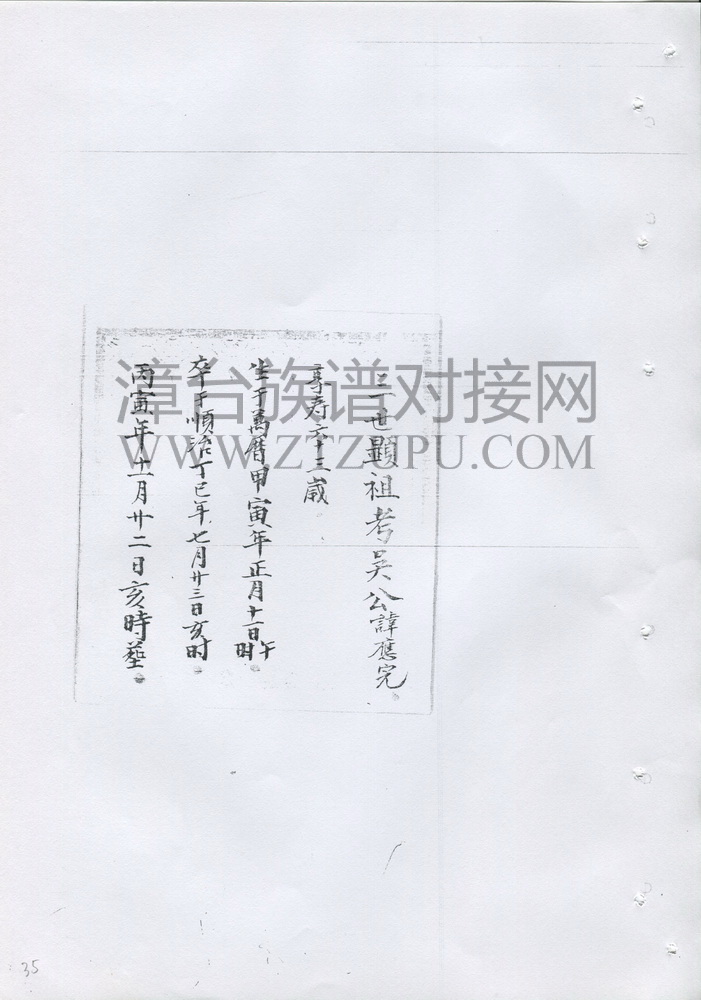 二世顯祖考吳公諱應完
享寿六十三歲
生于萬曆甲寅年正月十一日午時
卒于順治丁巳年七月廿三日亥时
丙寅年十一月廿二日亥時塟
漳台族谱对接网
WWW.ZTZUPU.COM
35